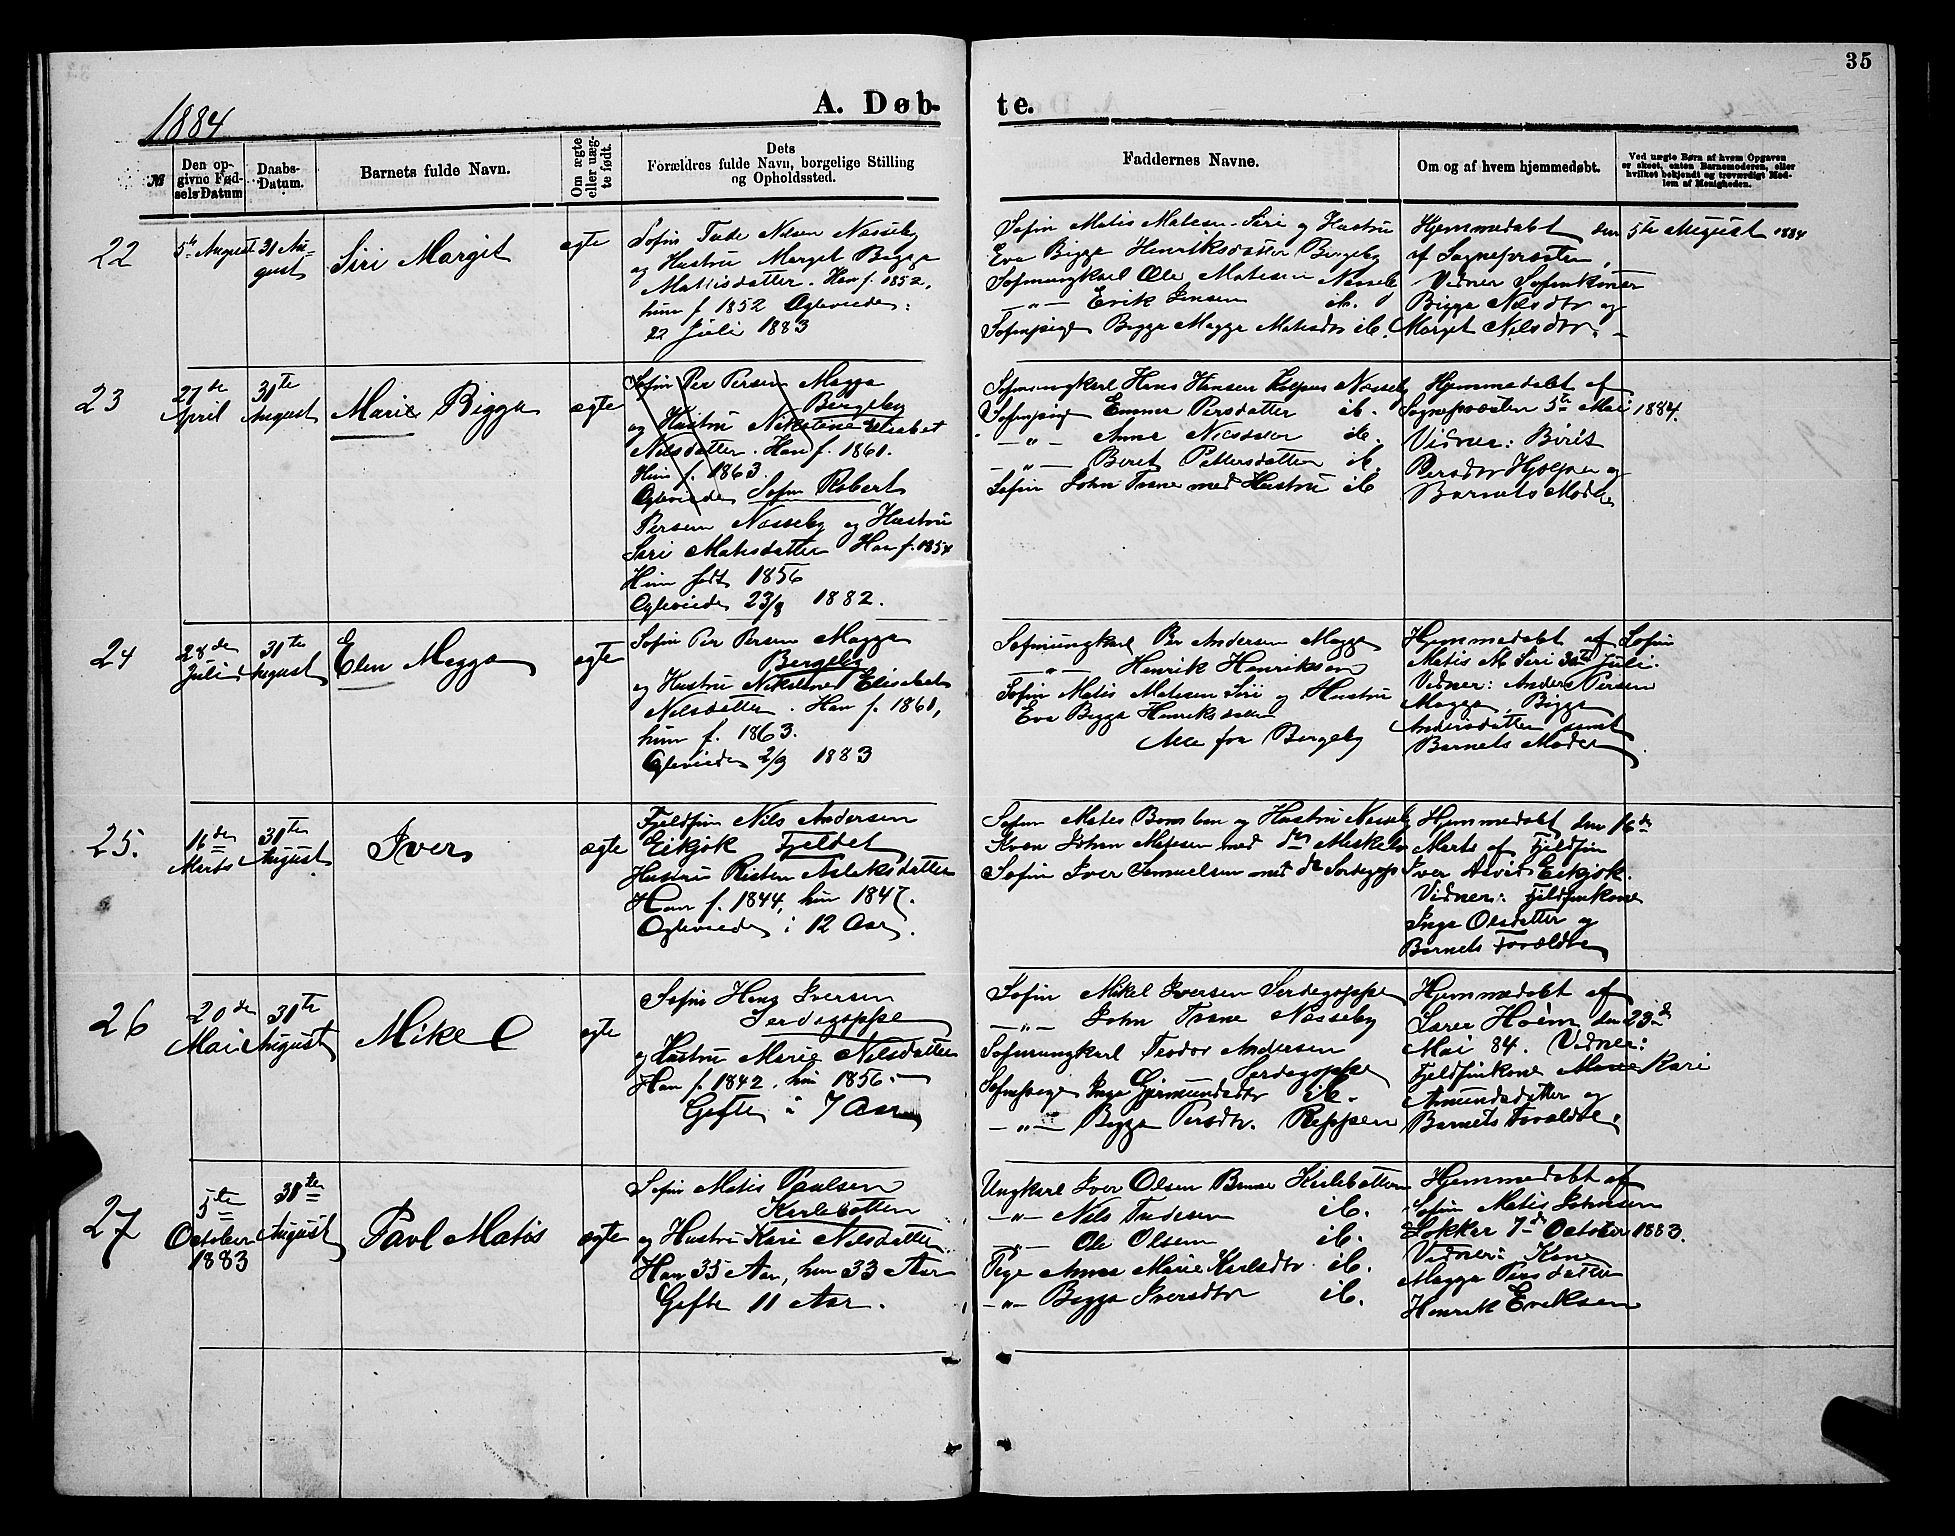 35
1884
A. Døb-
te.
№
Den op-
givne Fød-
sels Datum
Daabs-
Datum.
Barnets fulde Navn.
Om ægte
eller uæg-
te født.
Dets
Forældres fulde Navn, borgelige Stilling
og Opholdssted.
Faddernes Navne.
Om og af hvem hjemmedøbt.
Ved uægte Børn af hvem Opgaven
er skeet, enten Barnemoderen, eller
hvilket bekjendt og troværdigt Med-
lem af Menigheden.
22
5te August
31 Au-
gust
Siri Margit
ægte
Søfin Tude Nilsen Næsseby
og Hustru Marget Bigga
Matiisdatter. Han f. 1852,
hun f 1852 Ægteviede:
22 Juli 1883
Søfin Matis Matisen Siri og Hustru
Eva Bigga Henriksdatter Bergeby
Søfinungkarl Ole Matisen Næsseby
—„— Erik Jensen ib.
Søfinpige Bigga Magga Matisdtr ib.
Hjemmedøbt den 5te August 1884
af Sognepræsten,
Vidner Søfinkoner
Bigga Nilsdtr og
Marget Nilsdtr. –
23
27de
April
31te
August
Marie Bigga
ægte
Søfin Per Persen Magga
Bergeby
og Hustru Nikoline Elisabet
Nilsdatter. Han f. 1861.
Hun f. 1863.
Ægteviede Søfin Robert
Persen Næsseby og Hustru
Siri Matisdatter Han f. 1854
Hun født 1856
Ægteviede 23/8 1882.
Søfinungkarl Hans Hansen Næsseby
Søfinpige Emma Persdatter ib.
—„— Anne ib.
—„— Beret Pettersdatter ib.
Søfin John Trane med Hustru ib
Hjemmedøbt af
Sognepræsten 5te Mai 1884.
Vidner: Birit
Persdtr og
Barnets Moder
24
28de
Juli
31te
August
Elen Magga
ægte
Søfin Per Persen Magga
Bergeby
og Hustru Nikoline Elisabet
Nilsdatter. Han f. 1861,
hun f. 1863.
Ægteviede 2/9 1883
Søfinungkarl Per Andersen Magga
—„— Henrik Henriksen
Søfin Matis Matisen Siri og Hustru
Eva Bigga Henriksdatter
Alle fra Bergeby
Hjemmedøbt af Søfin
Matis M. Siri 30te Juli.
Vidner: Anders Persen
Magga, Bigga
Andersdatter samt
Barnets Moder
25.
16de
Marts
31te
August
Iver
ægte
Fjeldfin Nils Andersen
Eikjok Fjeldet
Hustru Risten Aslaksdatter
Han f. 1844, hun 1847.
Ægteviede i 12 Aar.
Søfin Matis og Hustru Næsseby
Kven Johan Matisen med do
Søfin Iver Samuelsen med do
Hjemmedøbt den 16de
Marts af Fjeldfin
Iver Eikjok.
Vidner: Fjeldfinkone
Inga Olsdatter og
Barnets Forældre
26
20de
Mai
31te
August
Mikel
ægte
Søfin Hans Iversen
Serdegoppe
og Hustru Marie Nilsdatter
Han f. 1842, hun 1856. –
Gifte i 7 Aar
Søfin Mikel Iversen Serdegoppe
—„— John Trane Næsseby
Søfinungkarl Teodor Andersen
Serdegoppe
Søfinpige Inga Gjermundsdtr ib.
—„— Bigga Persdtr. Reppen
Hjemmedøbt af
Lærer Holm den 23de
Mai 84. Vidner:
Fjeldfinkone Marie Kari
Amundsdatter og
Barnets Forældre.
27
5te
October
1883
31te
August
Pavl Matis
ægte
Søfin Matis Paulsen
Karlebotten
og Hustru Kari Nilsdatter
Han 35 Aar, hun 33 Aar
Gifte 11 Aar.
Ungkarl Iver Olsen Karlebotten
—„— Nils Tudesen ib.
—„— Ole Olsen ib.
Pige Anna Marie Karlsdtr ib.
—„— Bigga Iversdtr ib.
Hjemmedøbt af
Søfin Matis Johnsen
Lokker 7de October 1883.
Vidner: Kone
Magga Persdatter
Henrik Eriksen